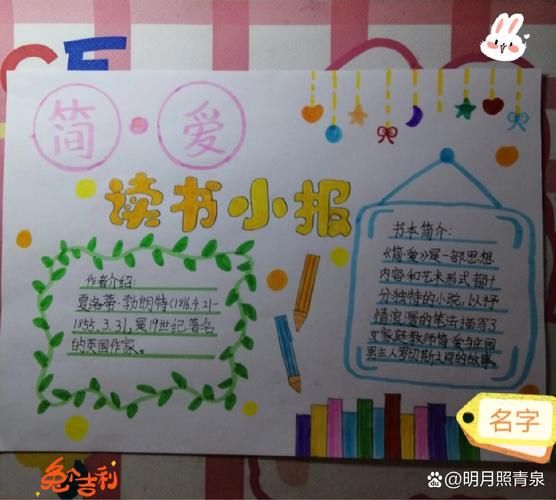 简·爱
读书小报
作者介绍:
夏洛蒂·勃朗特(1816.4.21-
1855.3.31),是19世纪著名
的英国作家。
书本简介:
《简·爱》是一部思想
内容和艺术形式都十
分独特的小说,以抒
情浪漫的笔法描写了
家庭教师简·爱与庄园
男主人罗切斯之间的故事。
名字
兔个吉利
@明月照青泉